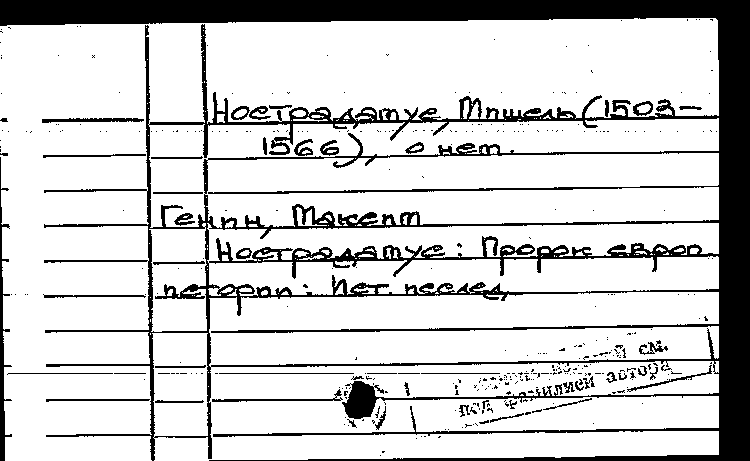 Нострадатус, Мишель (1503-
1566), о нет.
Генин, Максит
Нострадатус: Пророк европ
истории: Ист. исслед,
см.
под фамилией автора